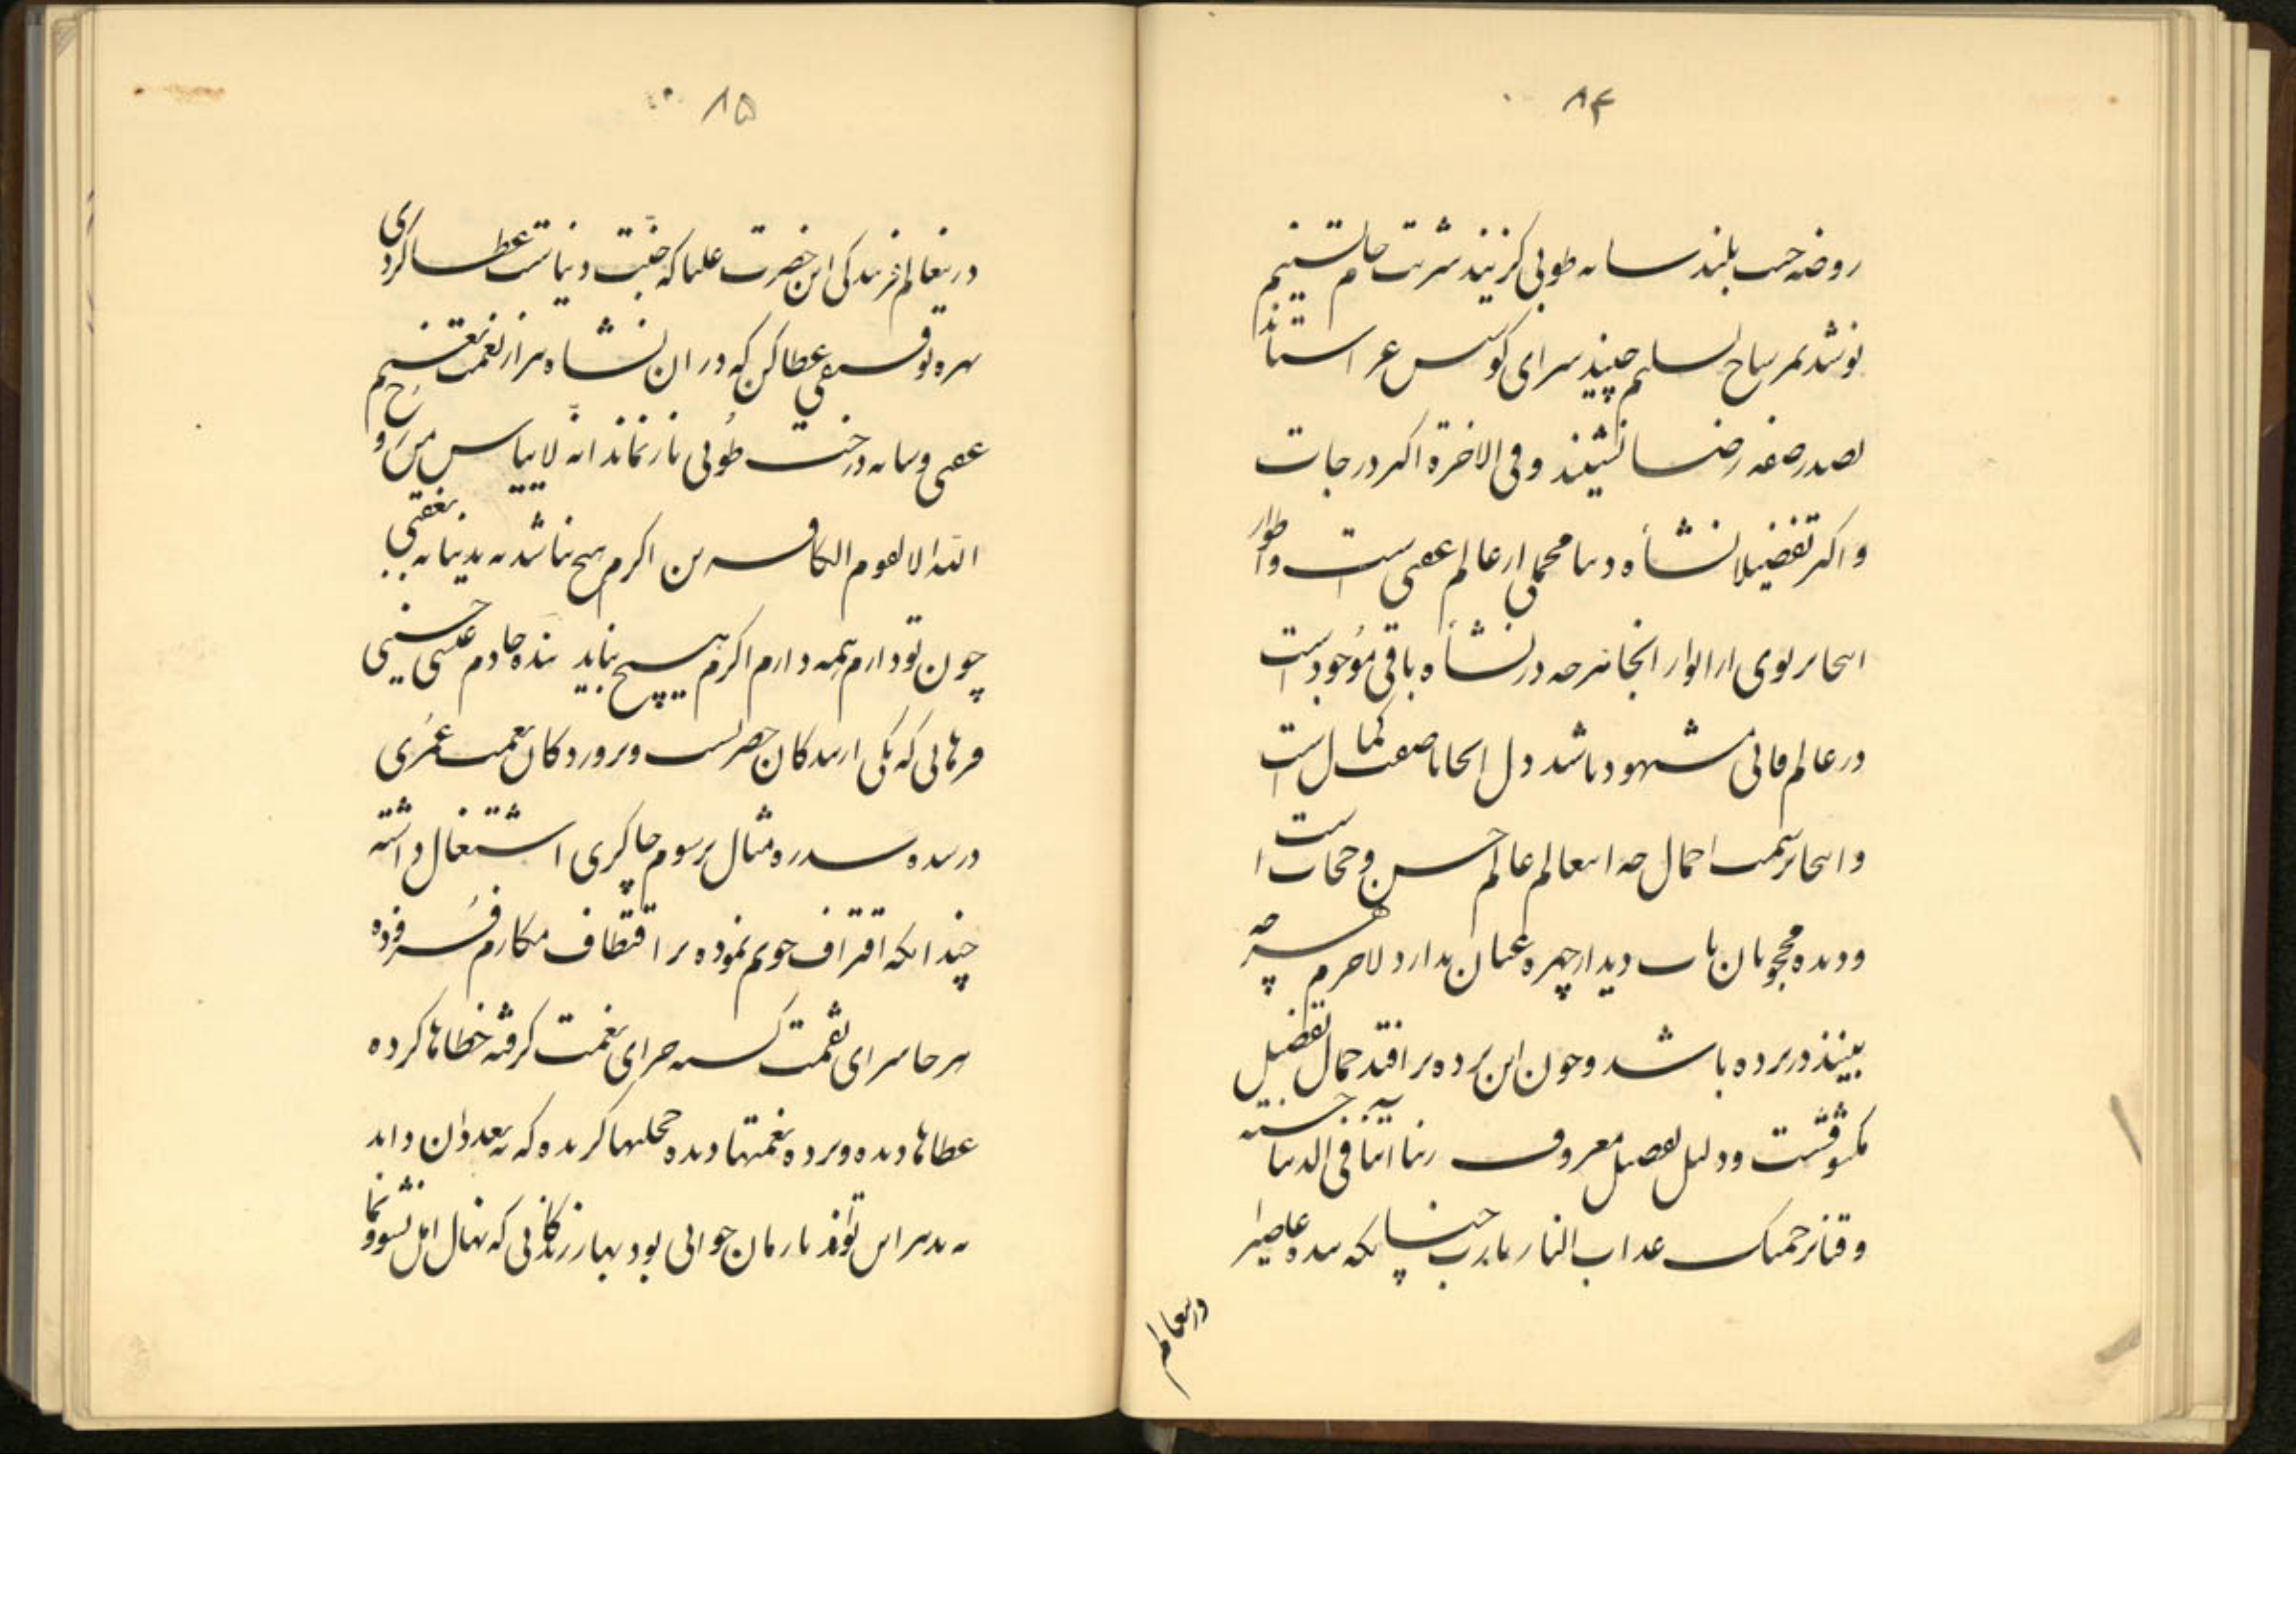 ۸۴
روضه حب بلند سایه طوبی گزیند شربت جام تسنیم
نوشد ثمر ریاح تسلیم چیند سرای کوس عز استاند
بصدر صفه رضا نشیند وفی الاخرة اکبر درجات
واکر تفضیلا نشأه دنیا مجملی از عالم عقبی است واطوار
اینجا پرتوی از انوار انجا هرچه در نشأه باقی موجود است
در عالم فانی مشهود باشد دل اینجا با صفت کمال است
واینجا بسمت اجمال چه اینعالم عالم حسن وحجاب است
ودیده محجوبان تاب دیدار چهره عیان ندارد لاجرم هرچه
بینند در پرده باشد وچون این پرده برافتد جمال تفضیل
مکشوفست ودلیل تفصیل معروف ربنا اتنا فی الدنیا حسنة
وقنا برحمتک عذاب النار یا رب چنانکه بنده عاصیرا
درینعالم
۸۵
درینعالم فرزندگی این حضرت علیا که جنت دنیاست عطا کردی
بهره توفیقی عطا کن که در ان نشاه هم از نعمت نعیم
عقبی وسایه درخت طوبی باز نماند انه لا ییاس من روح
الله الا القوم الکافرین اکرم هیچ نباشد نه بدنیا نه بعقبی
چون تو دارم همه دارم اکرم هیچ نباید بنده خادم علی حسینی
فرهانی که یکی از بندکان حضرتست وپروردکان نعمت عمری
در سده سدره مثال برسوم چاکری اشتغال داشته
چندانکه اقتراف جویم نموده بر اقتطاف مکارم فزوده
هر جا سزای نقمت کسته جزای نعمت کرفته خطاها کرده
عطاها دیده وپرده نعمتها دیده خجلتها کزیده که نه بعد وان داند
نه بدبر اس تواند تا زمان جوانی بود بهار زندکانی که نهال امل نشو ونما